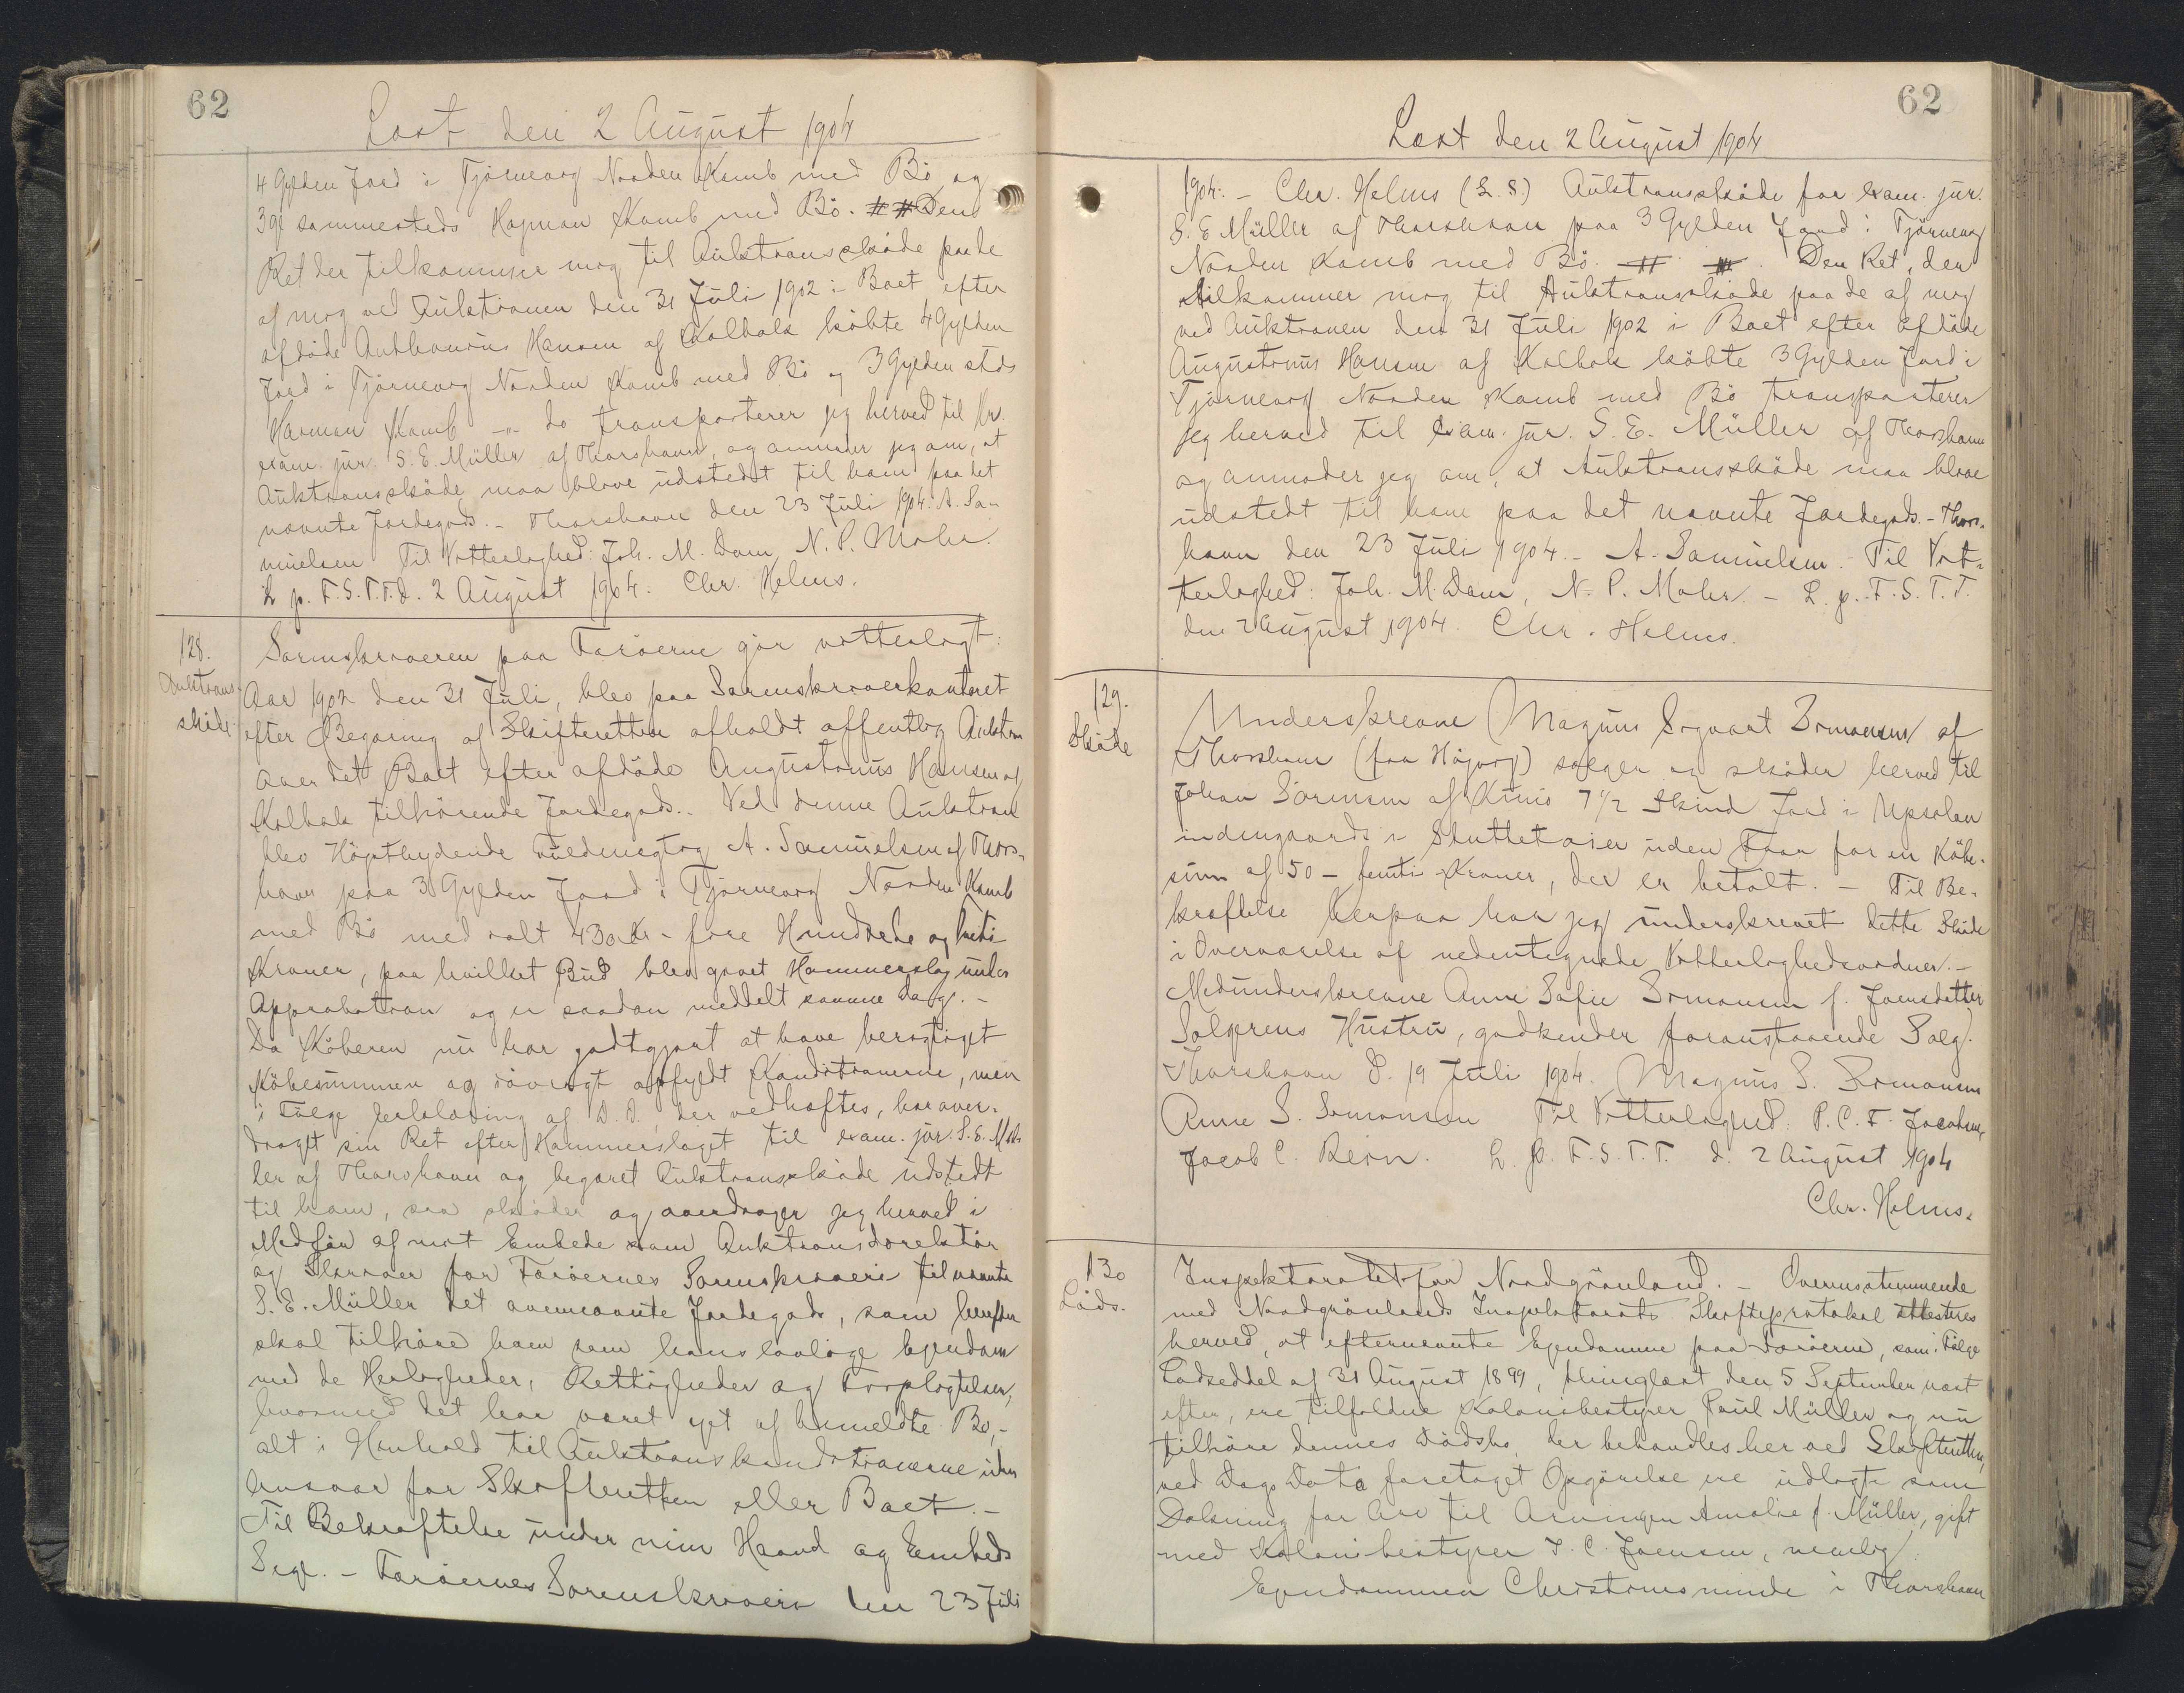 62
Læst den 2 August 1904
4 Gylden Jord i Tjörnevig Norden Kamb med Bö og
3 gl sammesteds Hayman Kamb med Bö. # # Den
Ret der tilkommer mig til Auktionsskøde paa de
af mig ved Auktionen den 31 Juli 1902 i Boet efter
afdöde Hansen af Kolbak köbte 4 Gylden
Jord i Tjörnevig Norden Kamb med Bö og 3 Gylden stds
Kamb -"- do transporterer jeg herved til Hr.
exam. jur. S. E. Müller af Thorshavn, og anmoder jeg om, at
Auktionsskøde maa blive udstedt til ham paa det
nævnte Jordegods. - Thorshavn den 23 Juli 1904. A. Sa-
muelsen Til Vitterlighed: Joh. M. Dam, N. P. Mohr.
L. p. F. S. T. T. d. 2 August 1904. Chr. Helms.
128.
Auktions-
skøde
Sorenskriveren paa Færöerne gör vitterligt:
Aar 1902 den 31 Juli, blev paa Sorenskriverkontoret
efter Begæring af Skifteretten afholdt offentlig Auktion
over det Boet efter afdöde Augustinus Hansen af
Kolbak tilhörende Jordegods. Ved denne Auktion
blev Höjstbydende Fuldmægtig A. Samuelsen af Thors-
havn paa 3 Gylden Jord i Tjörnevig Norden Kamb
med Bö med ialt 430 Kr - fire Hundrede og treti
Kroner, paa hvilket Bud blev givet Hammerslag under
Approbation og er saadan meddelt samme Dag. -
Da Köberen nu har godtgjort at have berigtiget
Köbesummen og iövrigt opfyldt Konditionerne, men
i Fölge Erklæring af D. D. der vedhæftes, har over-
draget sin Ret efter Hammerslaget til exam. jur. S. E. Mül-
ler af Thorshavn og begæret Auktionsskøde udstedt
til ham, saa skøder og overdrager jeg herved i
Medför af mit Embede som Auktionsdirektör
og Skriver for Færöernes Sorenskriveri til nævnte
S. E. Müller det ovennævnte Jordegods, som herefter
skal tilhöre ham som hans lovlige Ejendom
med de Herligheder, Rettigheder og Forpligtelser,
hvormed det har været ejet af bemeldte Bo, -
alt i Henhold til Auktionskonditionerne uden
Ansvar for Skifteretten eller Boet. -
Til Bekræftelse under min Haand og Embeds
Segl. - Færöernes Sorenskriveri den 23 Juli
62
Læst den 2 August 1904
1904. - Chr. Helms (L. S.) Auktionsskøde for exam. jur.
S. E Müller af Thorshavn paa 3 Gylden Jord i Tjörnevig
Norden Kamb med Bö. # # . Den Ret, der
tilkommer mig til Auktionsskøde paa de af mig
ved Auktionen den 31 Juli 1902 i Boet efter afdöde
Augustinus Hansen af Kolbak köbte 3 Gylden Jord i
Tjörnevig Norden Kamb med Bö transporterer
jeg herved til exam. jur. S. E. Müller af Thorshavn
og anmoder jeg om, at Auktionsskøde maa blive
udstedt til ham paa det nævnte Jordegods. - Thors-
havn den 23 Juli 1904. - A. Samuelsen. - Til Vit-
terlighed: Joh. M. Dam, N. P. Mohr. - L. p. F. S. T. T.
den 2 August 1904. Chr. Helms.
129.
Skøde
Underskrevne Magnus Sigvart Simonsen af
Thorshavn (fra Höjvig) sælger og skøder herved til
Johan Sörensen af Kunö 7 1/2 Skind Jord i
indengaards i uden Faar for en Köbe-
sum af 50 - femti Kroner, der er betalt. - Til Be-
kræftelse herpaa har jeg underskrevet dette Skøde
i Overværelse af nedentegnede Vitterlighedsvidner. -
Medunderskrevne Anne Sofie Simonsen f. Joensdatter
Sælgerens Hustru, godkender foranstaaende Salg.
Thorshavn d. 19 Juli 1904. Magnus S. Simonsen
Anne S. Simonsen Til Vitterlighed: P. C. F. Jacobsen,
Jacob C. Rein. L. p. F. S. T. T. d. 2 August 1904
Chr. Helms.
130
Inspektoratet for Nordgrönland. - Overensstemmende
med Nordgrönlands Inspektorats Skifteprotokol attesteres
herved, at efternævnte Ejendomme paa Færöerne, som i Fölge
Lodseddel af 31 August 1899, thinglæst den 5 September næst
efter, ere tilfaldne Kolonibestyrer Poul Müller og nu
tilhöre dennes Dödsbo, der behandles her ved Skifteretten,
ved Dags Dato foretaget Opgörelse ere udlagte som
Dækning for Arv til Arvingen Amalie f. Müller, gift
med Kolonibestyrer J. C. Joensen, nemlig
Ejendommen Christiansminde i Thorshavn